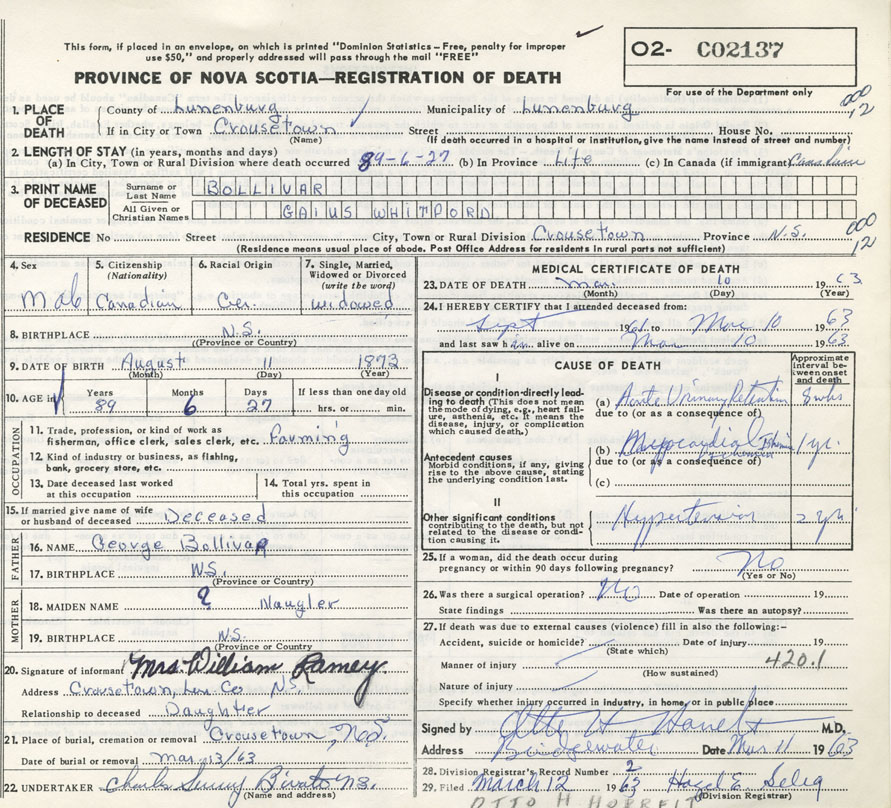 This form, if placed in an envelope, on which is printed "Dominion Statistics — Free, penalty for improper
use $50," and properly addressed will pass through the mail "FREE"
PROVINCE OF NOVA SCOTIA—REGISTRATION OF DEATH
O2- C02137
For use of the Department only
1. PLACE OF DEATH
County of Lunenburg Municipality of Lunenburg
000
12
If in City or Town Crousetown Street House No.
(Name) (If death occurred in a hospital or institution, give the name instead of street and number)
2. LENGTH OF STAY (in years, months and days)
(a) In City, Town or Rural Division where death occurred 89-6-27 (b) In Province Life (c) In Canada (if immigrant)
3. PRINT NAME OF DECEASED
Surname or Last Name BOLLIVAR
All Given or Christian Names GAIUS WHITFORD
RESIDENCE No Street City, Town or Rural Division Crousetown Province N.S.
000
12
(Residence means usual place of abode. Post Office Address for residents in rural parts not sufficient)
4. Sex
Male
5. Citizenship
(Nationality)
Canadian
6. Racial Origin
Ger.
7. Single, Married,
Widowed or Divorced
(write the word)
widowed
8. BIRTHPLACE N.S.
(Province or Country)
9. DATE OF BIRTH August 11 1873
(Month) (Day) (Year)
10. AGE in Years Months Days If less than one day old
89 6 27 hrs. or min.
OCCUPATION
11. Trade, profession, or kind of work as
fisherman, office clerk, sales clerk, etc. Farming
12. Kind of industry or business, as fishing,
bank, grocery store, etc.
13. Date deceased last worked
at this occupation
14. Total yrs. spent in
this occupation
15. If married give name of wife
or husband of deceased Deceased
FATHER
16. NAME George Bollivar
17. BIRTHPLACE N.S.
(Province or Country)
MOTHER
18. MAIDEN NAME ? Naugler
19. BIRTHPLACE N.S.
(Province or Country)
20. Signature of informant Mrs. William Ramey
Address Crousetown, Lun. Co. N.S.
Relationship to deceased Daughter
21. Place of burial, cremation or removal Crousetown, N.S.
Date of burial or removal mar. 13/63
22. UNDERTAKER Charles
(Name and address)
MEDICAL CERTIFICATE OF DEATH
23. DATE OF DEATH Mar. 10 1963
(Month) (Day) (Year)
24. I HEREBY CERTIFY that I attended deceased from:
Sept 1961 to Mar 10 1963
and last saw h im alive on Mar 10 1963
CAUSE OF DEATH
Approximate
interval be-
tween onset
and death
I
Disease or condition directly lead-
ing to death (This does not mean
the mode of dying, e.g., heart fail-
ure, asthenia, etc. It means the
disease, injury, or complication
which caused death.)
(a) Acute Urinary Retention 8 wks
due to (or as a consequence of)
Antecedent causes
Morbid conditions, if any, giving
rise to the above cause, stating
the underlying condition last.
(b) Myocardial 1 yr.
due to (or as a consequence of)
(c)
II
Other significant conditions
contributing to the death, but not
related to the disease or condi-
tion causing it.
Hypertension 2 yrs
25. If a woman, did the death occur during
pregnancy or within 90 days following pregnancy? No
(Yes or No)
26. Was there a surgical operation? No Date of operation 19
State findings Was there an autopsy?
27. If death was due to external causes (violence) fill in also the following:—
Accident, suicide or homicide? Date of injury 19
(State which)
Manner of injury 420.1
(How sustained)
Nature of injury
Specify whether injury occurred in industry, in home, or in public place
Signed by M.D.
Address Bridgewater Date Mar 11 1963
28. Division Registrar's Record Number 2
29. Filed March 12 1963 Hazel E. Selig
(Division Registrar)
OTTO H